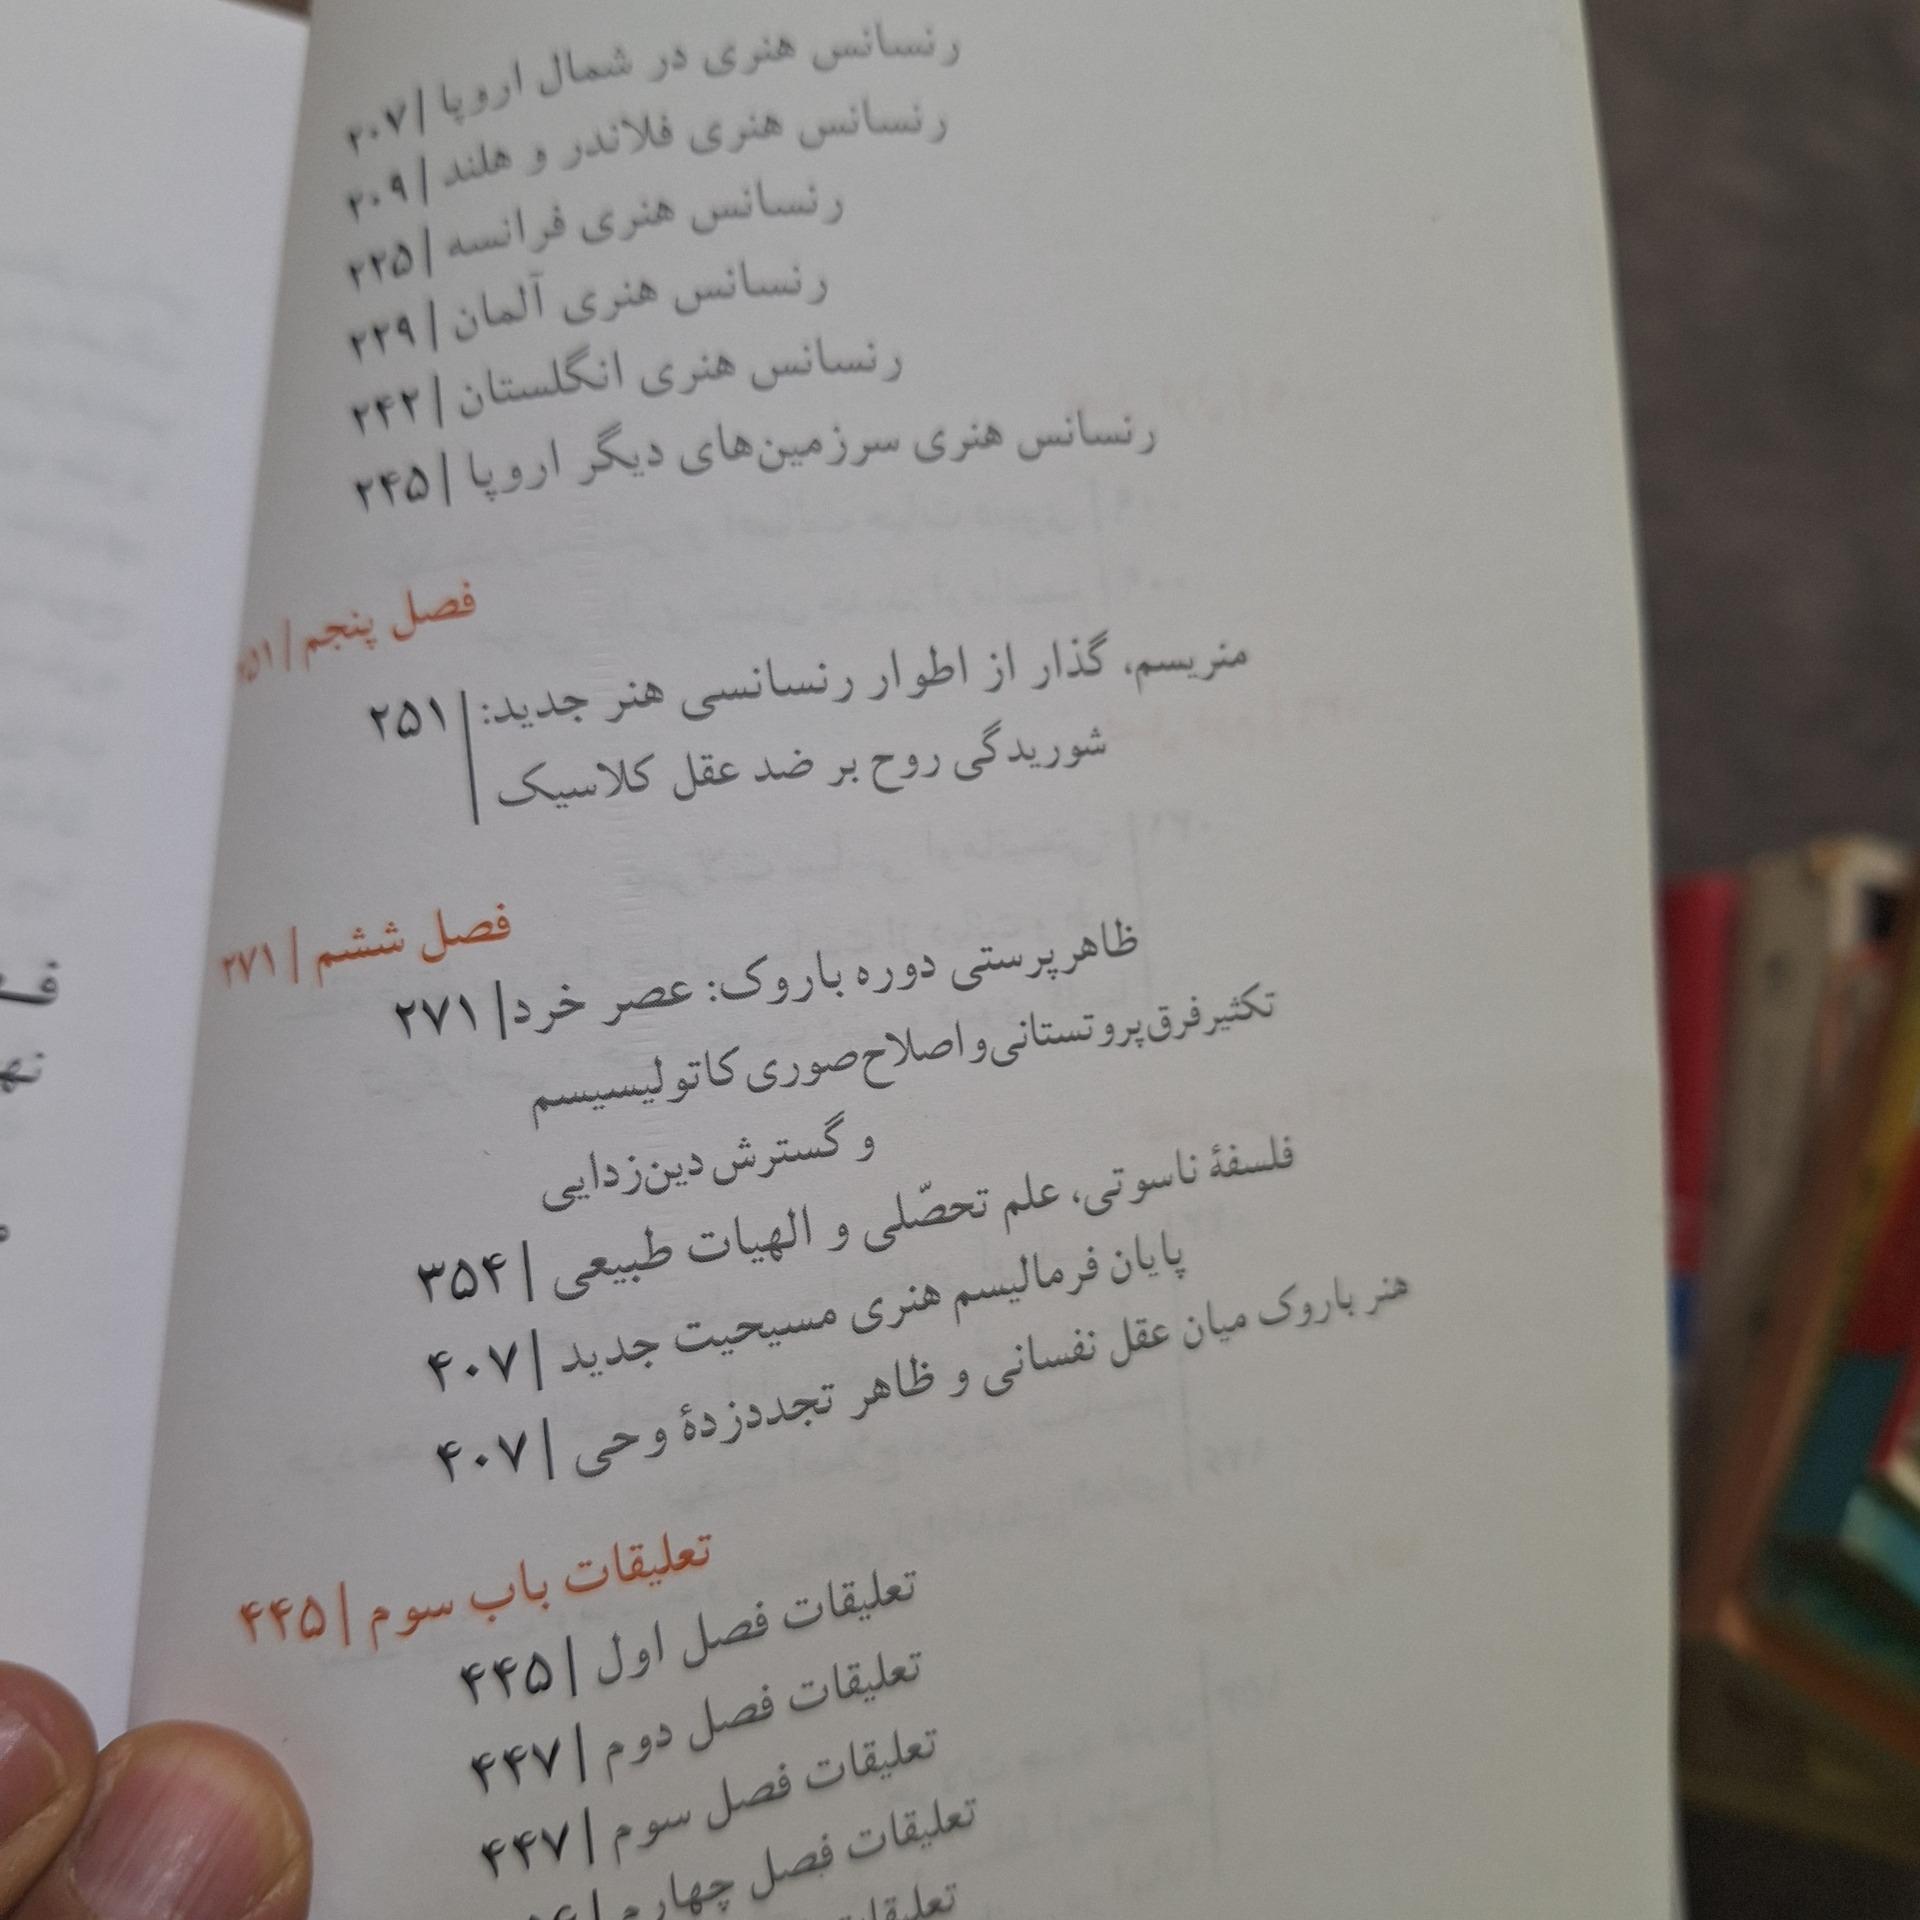 رنسانس هنری در شمال اروپا | ۲۰۷
رنسانس هنری فلاندر و هلند | ۲۰۹
رنسانس هنری فرانسه | ۲۲۵
رنسانس هنری آلمان | ۲۲۹
رنسانس هنری انگلستان | ۲۴۲
رنسانس هنری سرزمین‌های دیگر اروپا | ۲۴۵
فصل پنجم | ۲۵۱
منریسم، گذار از اطوار رنسانسی هنر جدید: | ۲۵۱
شوریدگی روح بر ضد عقل کلاسیک
فصل ششم | ۲۷۱
ظاهرپرستی دوره باروک: عصر خرد | ۲۷۱
تکثیر فرق پروتستانی و اصلاح صوری کاتولیسیسم
و گسترش دین‌زدایی
فلسفهٔ ناسوتی، علم تحصّلی و الهیات طبیعی | ۳۵۴
پایان فرمالیسم هنری مسیحیت جدید | ۴۰۷
هنر باروک میان عقل نفسانی و ظاهر تجددزدهٔ وحی | ۴۰۷
تعلیقات باب سوم | ۴۴۵
تعلیقات فصل اول | ۴۴۵
تعلیقات فصل دوم | ۴۴۷
تعلیقات فصل سوم | ۴۴۷
تعلیقات فصل چهارم |
تعلیقات